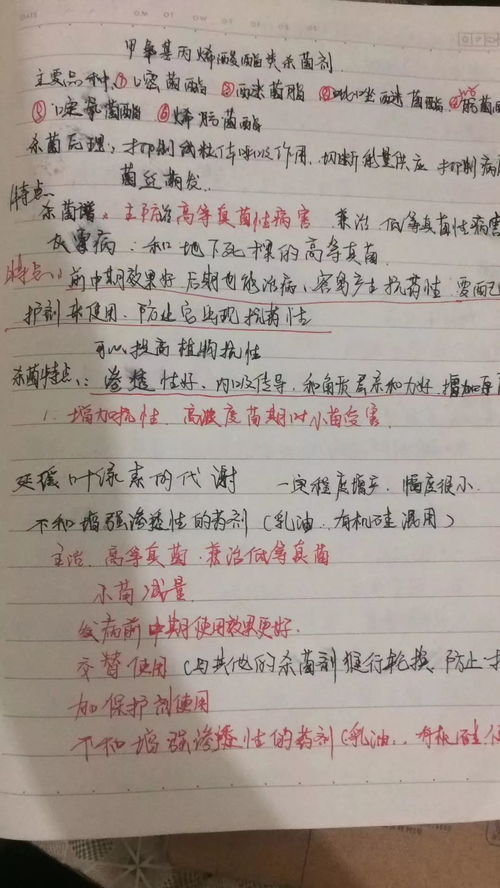 甲氧基丙烯酸酯类杀菌剂
主要品种:①嘧菌酯 ②醚菌酯 ③吡唑醚菌酯 ④肟菌酯
⑤嘧氧菌酯 ⑥烯肟菌酯
杀菌原理:抑制线粒体呼吸作用、切断能量供应 抑制病
菌丝萌发.
特点
杀菌谱:主防治高等真菌性病害 兼治低等真菌性病害
灰霉病:和地下死棵的高等真菌
特点:前中期效果好,后期也能治病,容易产生抗药性,要配
护剂来使用、防止它出现抗药性
可以提高植物抗性
杀菌特点:渗透性好、内吸传导、和角质层亲和力好,增加
1.增加抗性、高浓度苗期时小苗受害.
延缓叶绿素的代谢 一定程度增产,幅度很小.
不和增强渗透性的药剂(乳油、有机硅混用)
主治:高等真菌 兼治低等真菌
小苗减量
发病前中期使用效果更好.
交替使用(与其他的杀菌剂进行轮换,防止
加保护剂使用
不和增强渗透性的药剂(乳油、有机硅